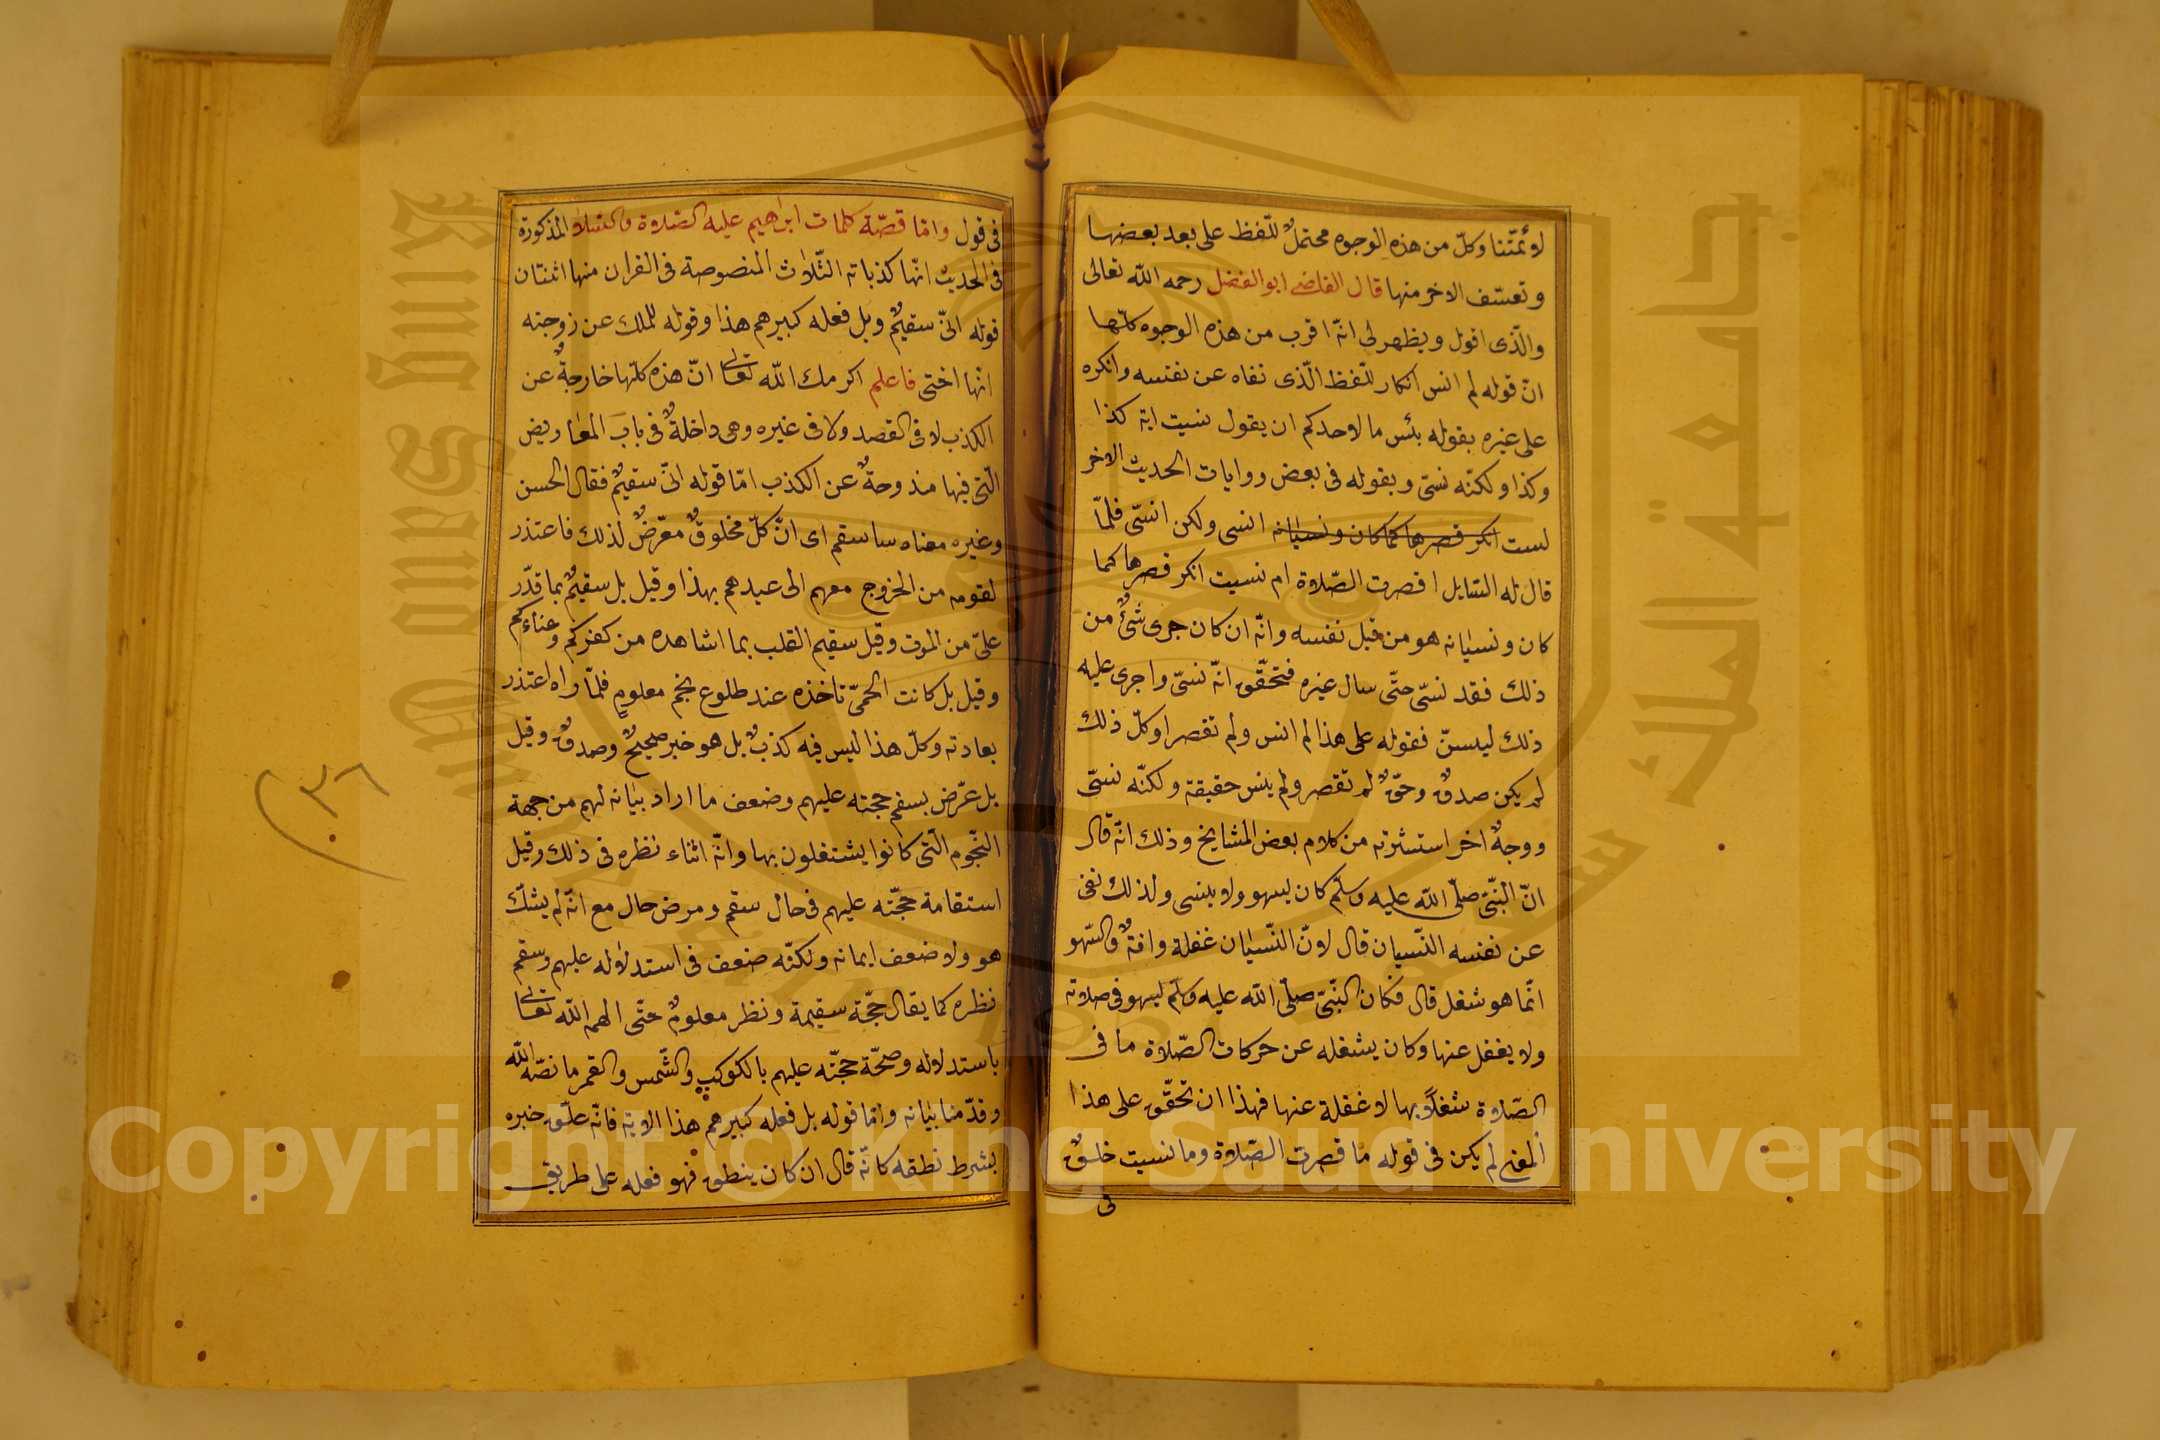 لأئمّتنا وكلّ من هذه الوجوه محتملٌ للّفظ على بعد بعضها
وتعسّف الاخر منها قال القاضى ابو الفضل رحمه اللّه تعالى
والّذى اقول ويظهر لى انّه اقرب من هذه الوجوه كلّها
انّ قوله لم انس انكار للّفظ الّذى نفاه عن نفسه وانكره
على غيره بقوله بئس ما لاحدكم ان يقول نسيت اية كذا
وكذا ولكنّه نسّى وبقوله فى بعض روايات الحديث الاخر
لست انكر قصرها كما كان ونسيانه انسى ولكن انسّى فلمّا
قال له السّايل اقصرت الصّلاة ام نسيت انكر قصرها كما
كان ونسيانه هو من قبل نفسه وانّه ان كان جرى شئٌ من
ذلك فقد نسّى حتّى سال غيره فتحقّق انّه نسّى واجرى عليه
ذلك ليسنّ فقوله على هذا لم انس ولم تقصر او كلّ ذلك
لم يكن صدقٌ وحقٌّ لم تقصر ولم ينس حقيقة ولكنّه نسّى
ووجهٌ اخر استشرته من كلام بعض المشايخ وذلك انّه قال
انّ النّبىّ صلّى اللّه عليه وسلّم كان يسهو ولا ينسى ولذلك نفى
عن نفسه النّسيان قال لانّ النّسيان غفلة وافةٌ والسّهو
انّما هو شغل قال فكان النّبىّ صلّى اللّه عليه وسلّم يسهو فى صلاته
ولا يغفل عنها وكان يشغله عن حركات الصّلاة ما فى
الصّلاة شغلاً بها لا غفلة عنها فهذا ان تحقّق على هذا
المعنى لم يكن فى قوله ما قصرت الصّلاة وما نسيت خلفٌ
فى
فى قول وامّا قصّة كلمات ابراهيم عليه الصّلاة والسّلام المذكورة
فى الحديث انّها كذباته الثّلاث المنصوصة فى القران منها اثنتان
قوله انّى سقيمٌ وبل فعله كبيرهم هذا وقوله للملك عن زوجته
انّها اختى فاعلم اكرمك اللّه تعالى انّ هذه كلّها خارجةٌ عن
الكذب لا فى القصد ولا فى غيره وهى داخلةٌ فى باب المعاريض
الّتى فيها مندوحةٌ عن الكذب امّا قوله انّى سقيمٌ فقال الحسن
وغيره معناه ساسقم اى انّ كلّ مخلوقٌ معرّضٌ لذلك فاعتذر
لقومه من الخروج معهم الى عيدهم بهذا وقيل بل سقيمٌ بما قدّر
علىّ من الموت وقيل سقيم القلب بما اشاهده من كفركم وعنادكم
وقيل بل كانت الحمّى تاخذه عند طلوع نجم معلومٍ فلمّا راه اعتذر
بعادته وكلّ هذا ليس فيه كذبٌ بل هو خبر صحيحٌ وصدقٌ وقيل
بل عرّض بسقم حجته عليهم وضعف ما اراد بيانه لهم من جهة
النّجوم الّتى كانوا يشتغلون بها وانّه اثناء نظره فى ذلك وقيل
استقامة حجّته عليهم فى حال سقم ومرض حال مع انّه لم يشكّ
هو ولا ضعف ايمانه ولكنّه ضعف فى استدلاله عليهم وسقم
نظره كما يقال حجّة سقيمة ونظر معلومٌ حتّى الهمه اللّه تعالى
باستدلاله وصحّة حجّته عليهم بالكوكب والشّمس والقمر ما نصّه اللّه
وقدّمنا بيانه وامّا قوله بل فعله كبيرهم هذا الاية فانّه علّق خبره
بشرط نطقه كانّه قال ان كان ينطق فهو فعله على طريق
٣٦
King Saud University
جامعة الملك سعود
Copyright © King Saud University